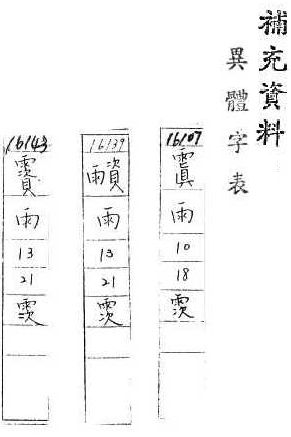 補充資料
異體字表
16107
雨
10
18
16139
雨
13
21
16143
雨
13
21